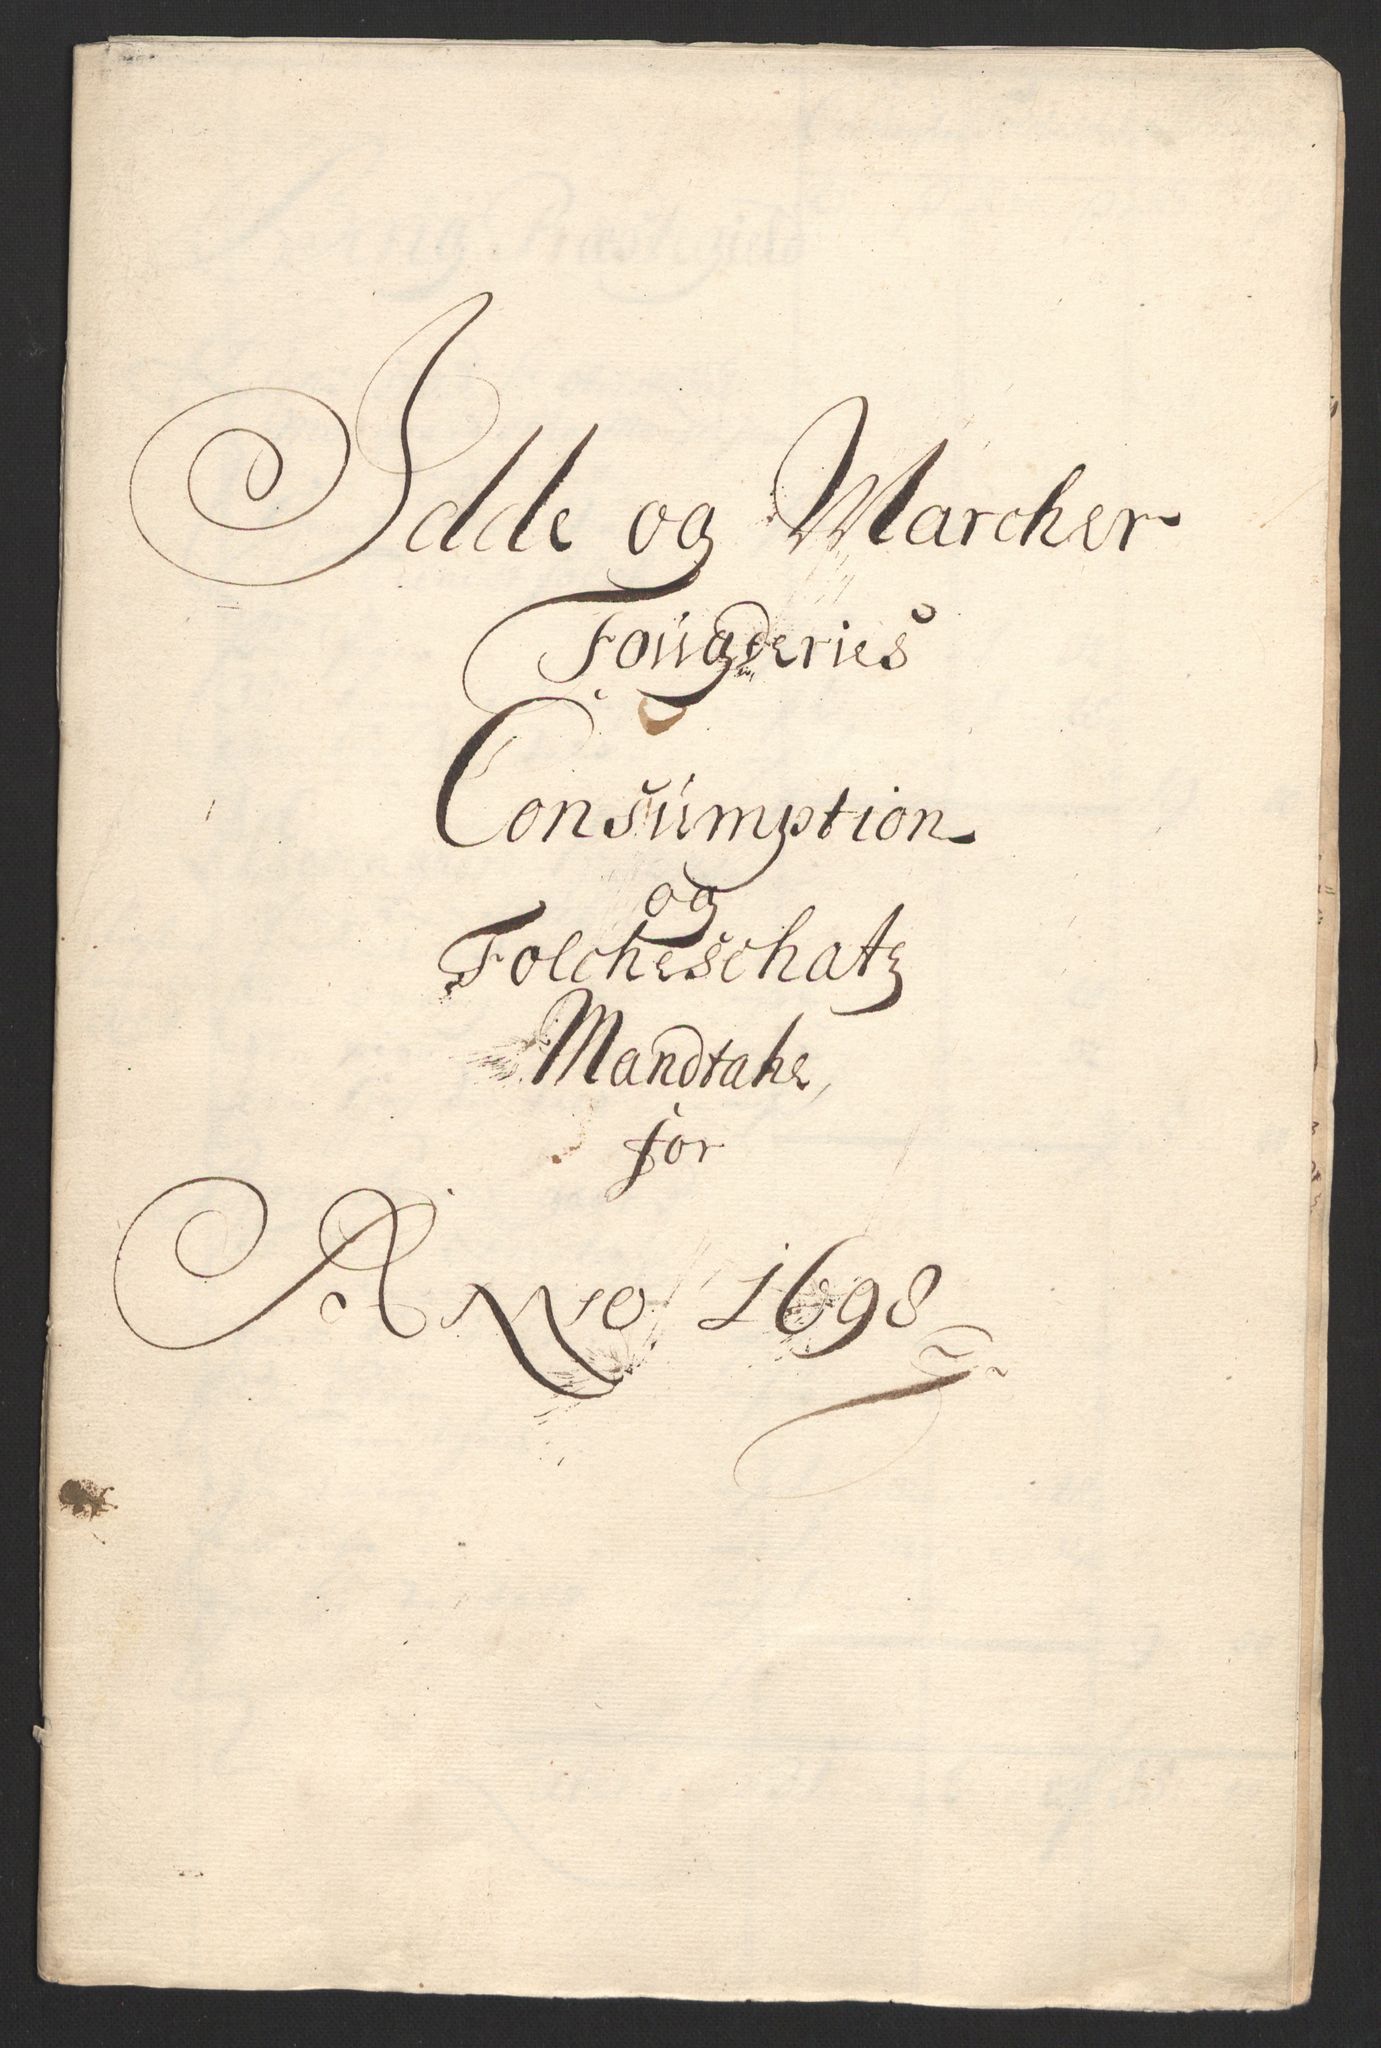 Idde og Marcher
Foügderies
Consümption
og
Folcheschatz
Mandtahl
for
Anno 1698